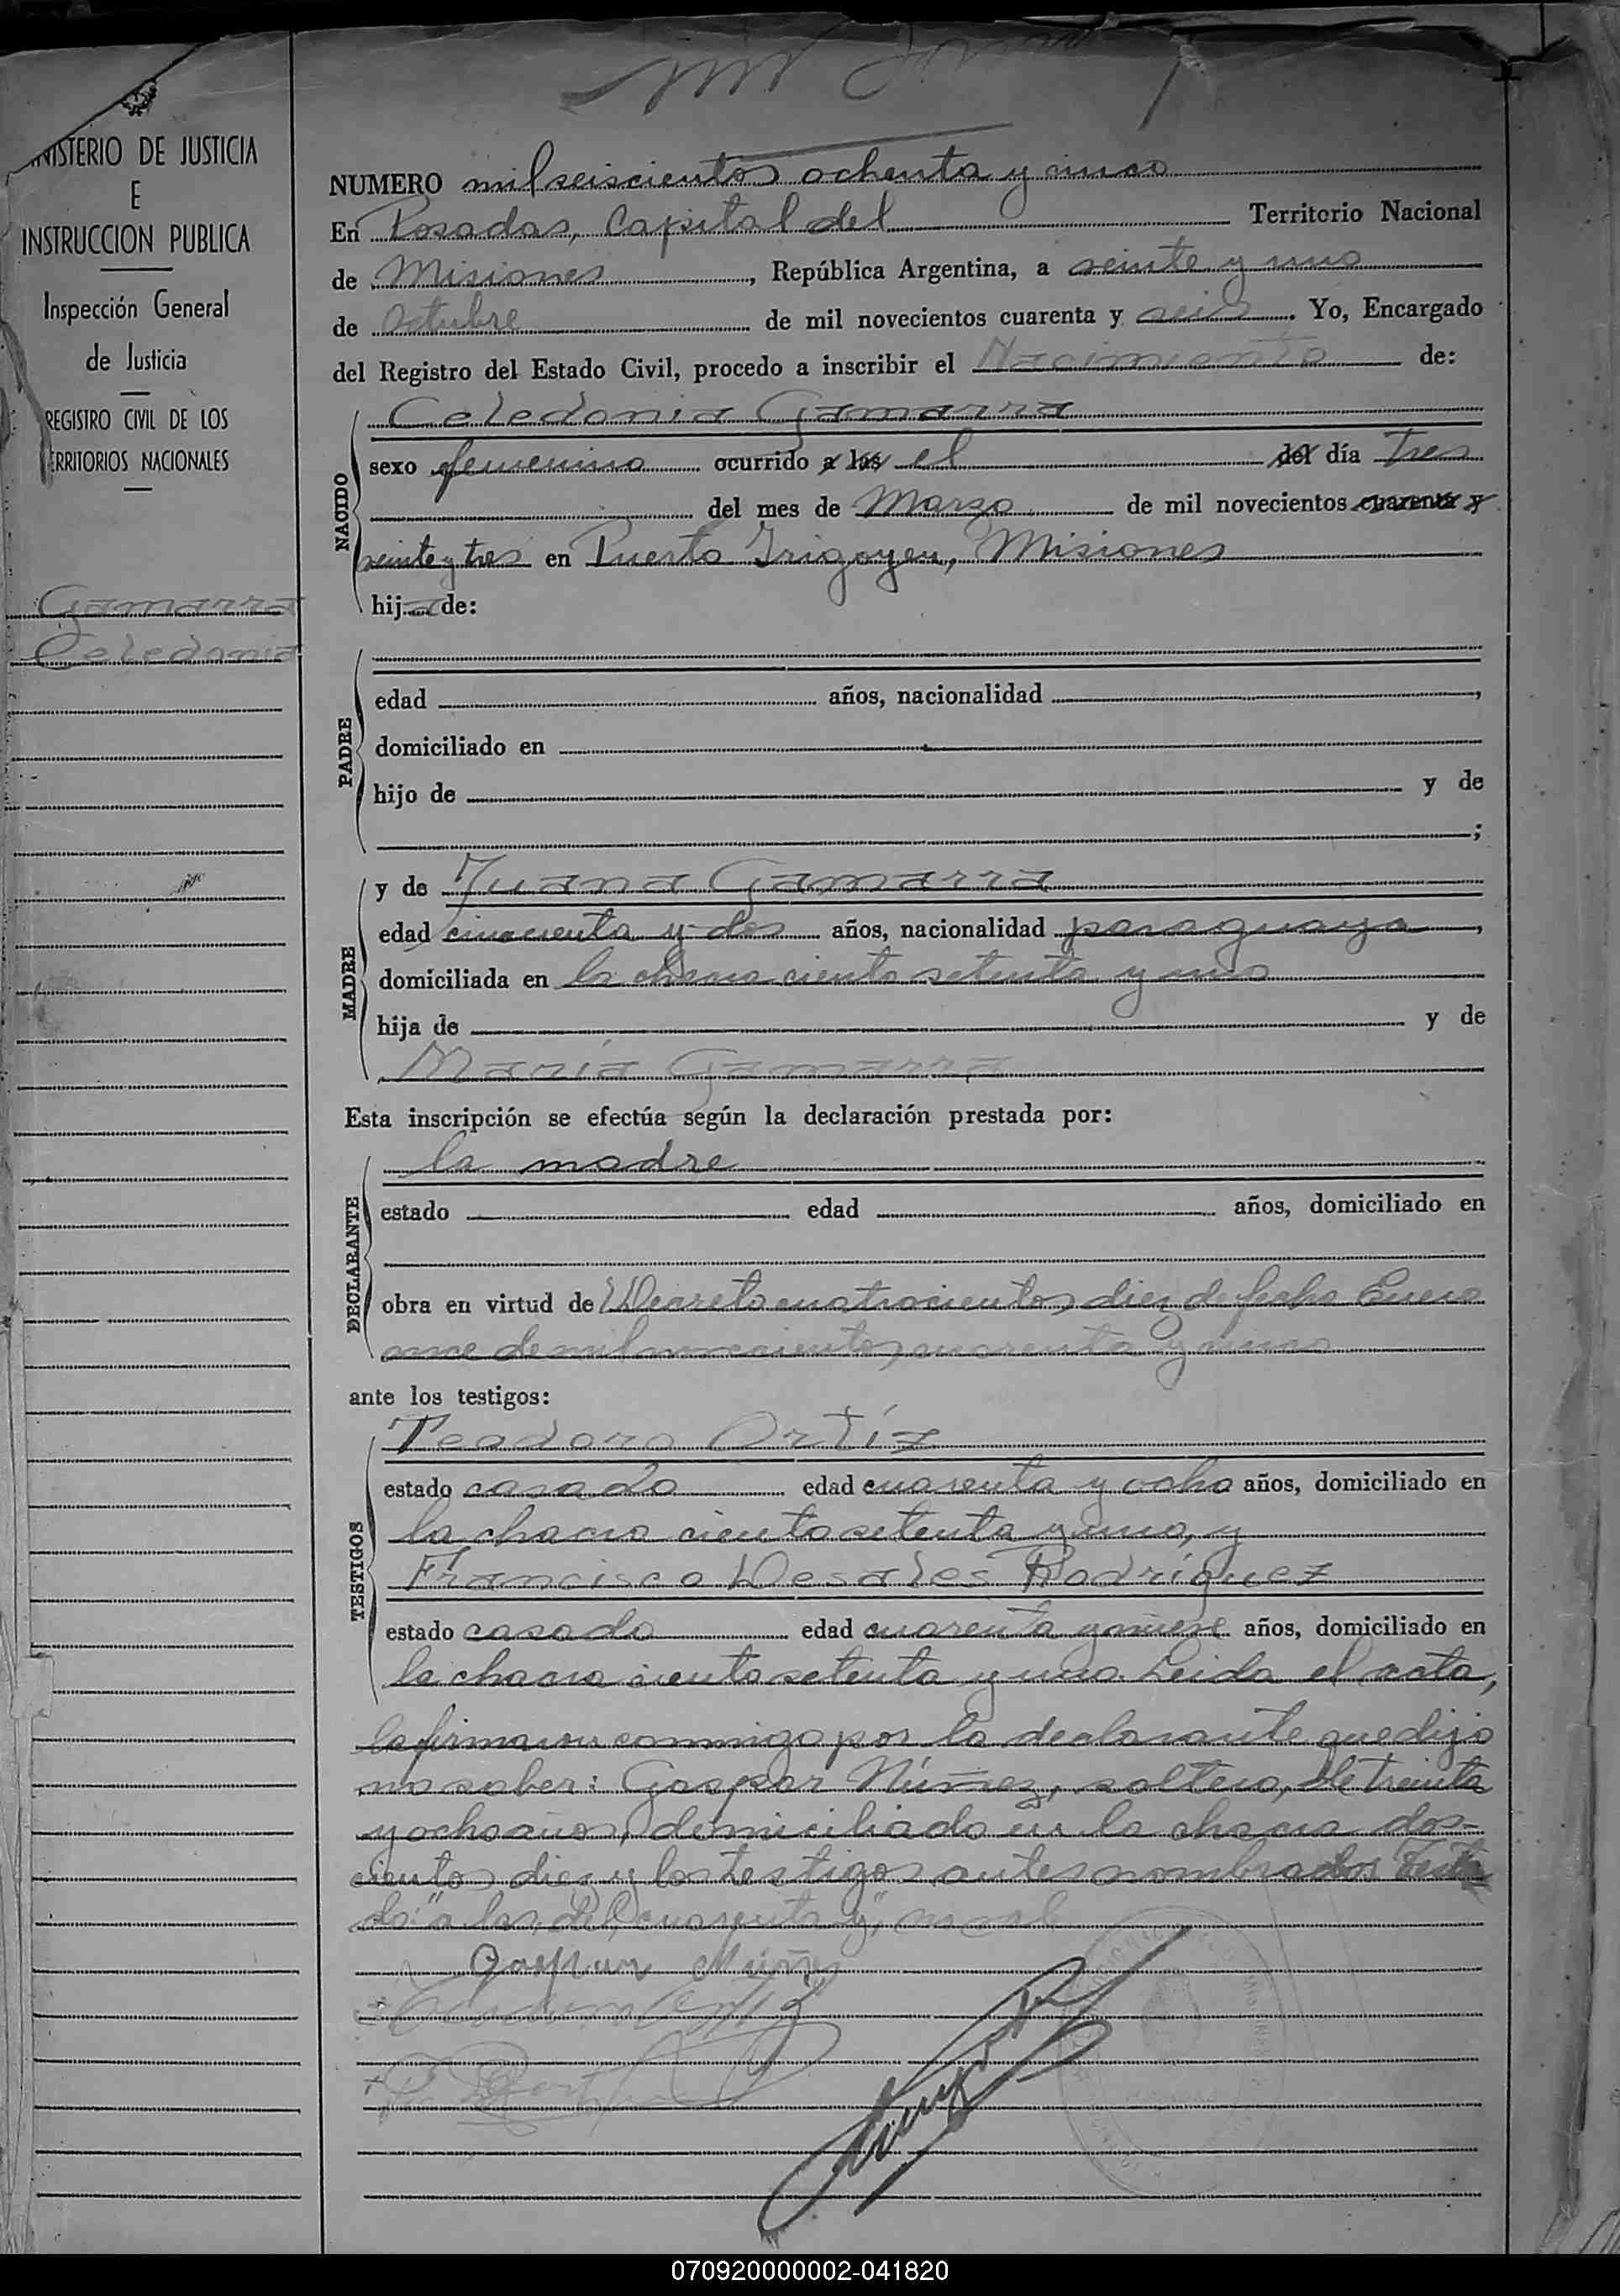 MINISTERIO DE JUSTICIA
E
INSTRUCCION PUBLICA
Inspección General
de Justicia
REGISTRO CIVIL DE LOS
TERRITORIOS NACIONALES
Gamarra
Celedonia
NUMERO mil seiscientos ochenta y cinco
En Posadas, Capital del Territorio Nacional
de Misiones, República Argentina, a veinte y uno
de Octubre de mil novecientos cuarenta y seis. Yo, Encargado
del Registro del Estado Civil, procedo a inscribir el Nacimiento de:
NACIDO
Celedonia Gamarra
sexo femenino ocurrido a las el del día tres
del mes de Marzo de mil novecientos cuarenta y
veinte y tres en Puerto Irigoyen, Misiones
hija de:
PADRE
edad años, nacionalidad ,
domiciliado en
hijo de y de
;
MADRE
y de Juana Gamarra
edad cincuenta y dos años, nacionalidad paraguaya,
domiciliada en la chacra ciento setenta y uno
hija de y de
María Gamarra
Esta inscripción se efectúa según la declaración prestada por:
DECLARANTE
la madre
estado edad años, domiciliado en
obra en virtud de Decreto cuatrocientos diez de fecha Enero
once de mil novecientos cuarenta y
ante los testigos:
TESTIGOS
Teodoro Ortíz
estado casado edad cuarenta y ocho años, domiciliado en
la chacra ciento setenta y uno, y
Francisco Desales Rodríguez
estado casado edad cuarenta y nueve años, domiciliado en
la chacra ciento setenta y uno. Leida el acta,
la firmaron conmigo por la declarante que dijo
no saber: Gaspar Núñez, soltero, de treinta
y ocho años, domiciliado en la chacra dos-
cientos diez y los testigos antes nombrados Testa
do: "a las, del, cuarenta y", no vale
Gaspar Núñez
070920000002-041820